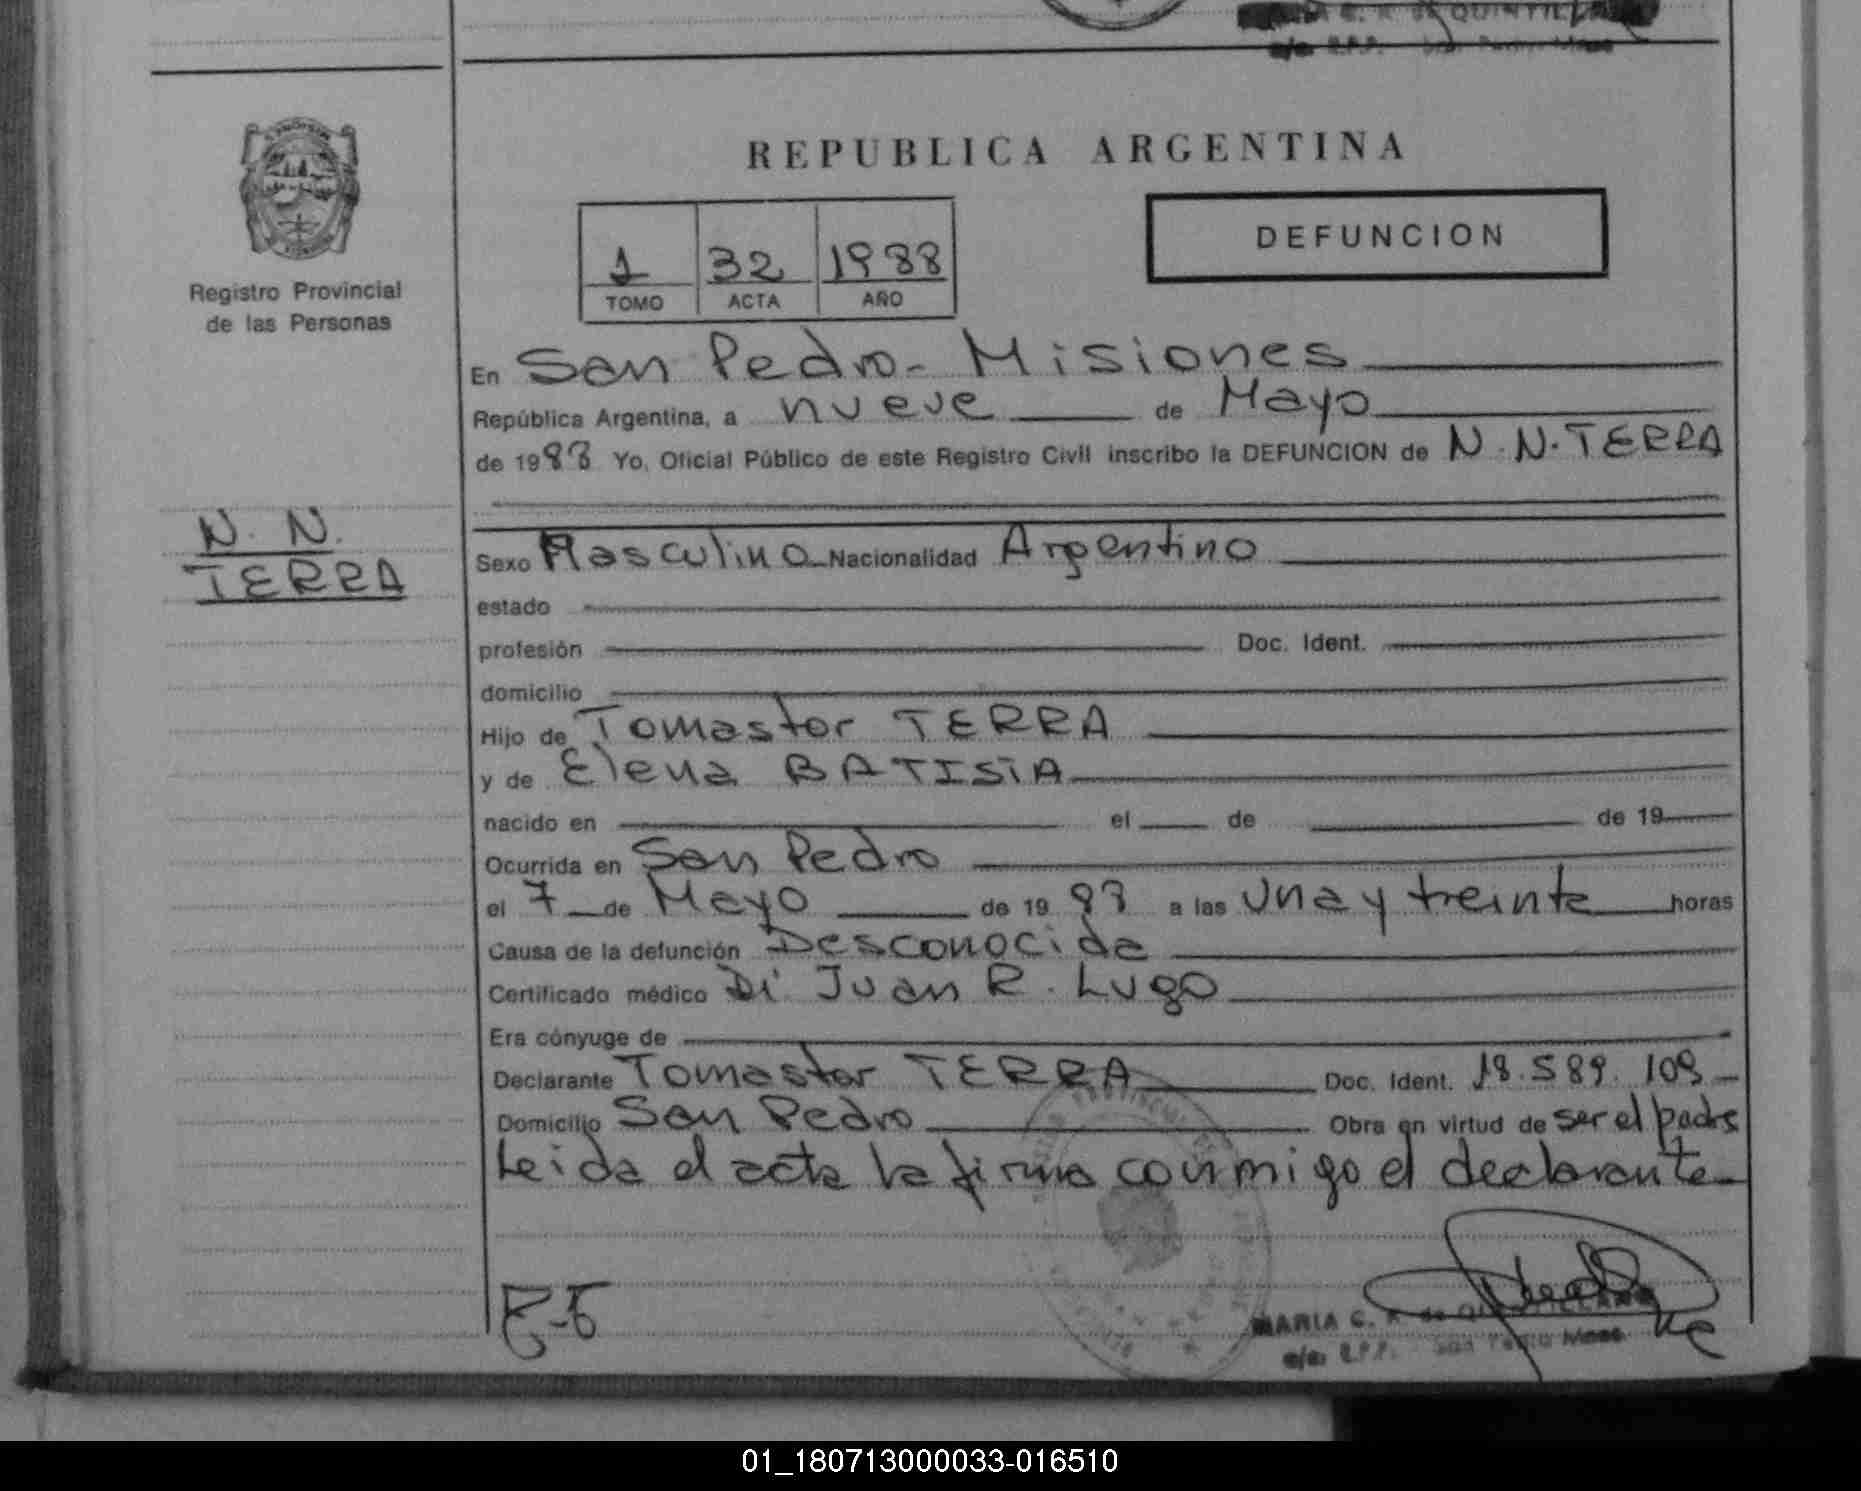 QUINTILLANO
REPUBLICA ARGENTINA
DEFUNCION
1 32 1988
TOMO ACTA AÑO
Registro Provincial
de las Personas
En San Pedro - Misiones
República Argentina, a nueve de Mayo
de 1988 Yo, Oficial Público de este Registro Civil inscribo la DEFUNCION de N. N. TERRA
N. N.
TERRA
Sexo Masculino Nacionalidad Argentino
estado
profesión Doc. Ident.
domicilio
Hijo de Tomastor TERRA
y de Elena BATISTA
nacido en el de de 19
Ocurrida en San Pedro
el 7 de Mayo de 1988 a las una y treinta horas
Causa de la defunción Desconocida
Certificado médico Dr. Juan R. Lugo
Era cónyuge de
Declarante Tomastor TERRA Doc. Ident. 18.589.109
Domicilio San Pedro Obra en virtud de ser el padre
Leida el acta la firma conmigo el declarante
MARIA G. R. de QUINTILLANO
San Pedro Mnes
01_180713000033-016510